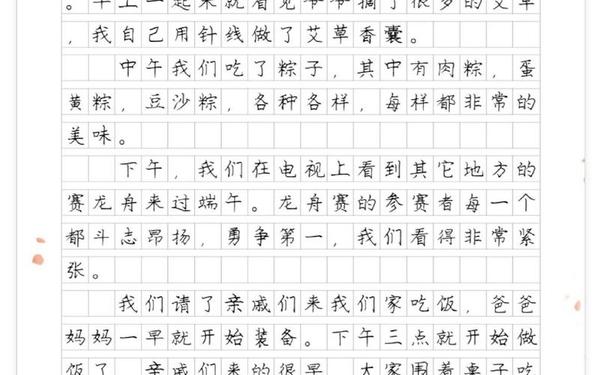 。早上一起来就看见爷爷摘了很多的艾草
，我自己用针线做了艾草香囊。
中午我们吃了粽子，其中有肉粽，蛋
黄粽，豆沙粽，各种各样，每样都非常的
美味。
下午，我们在电视上看到其它地方的
赛龙舟来过端午。龙舟赛的参赛者每一个
都斗志昂扬，勇争第一，我们看得非常紧
张。
我们请了亲戚们来我们家吃饭，爸爸
妈妈一早就开始装备。下午三点就开始做
饭了，亲戚们来的很早，大家围着桌子吃